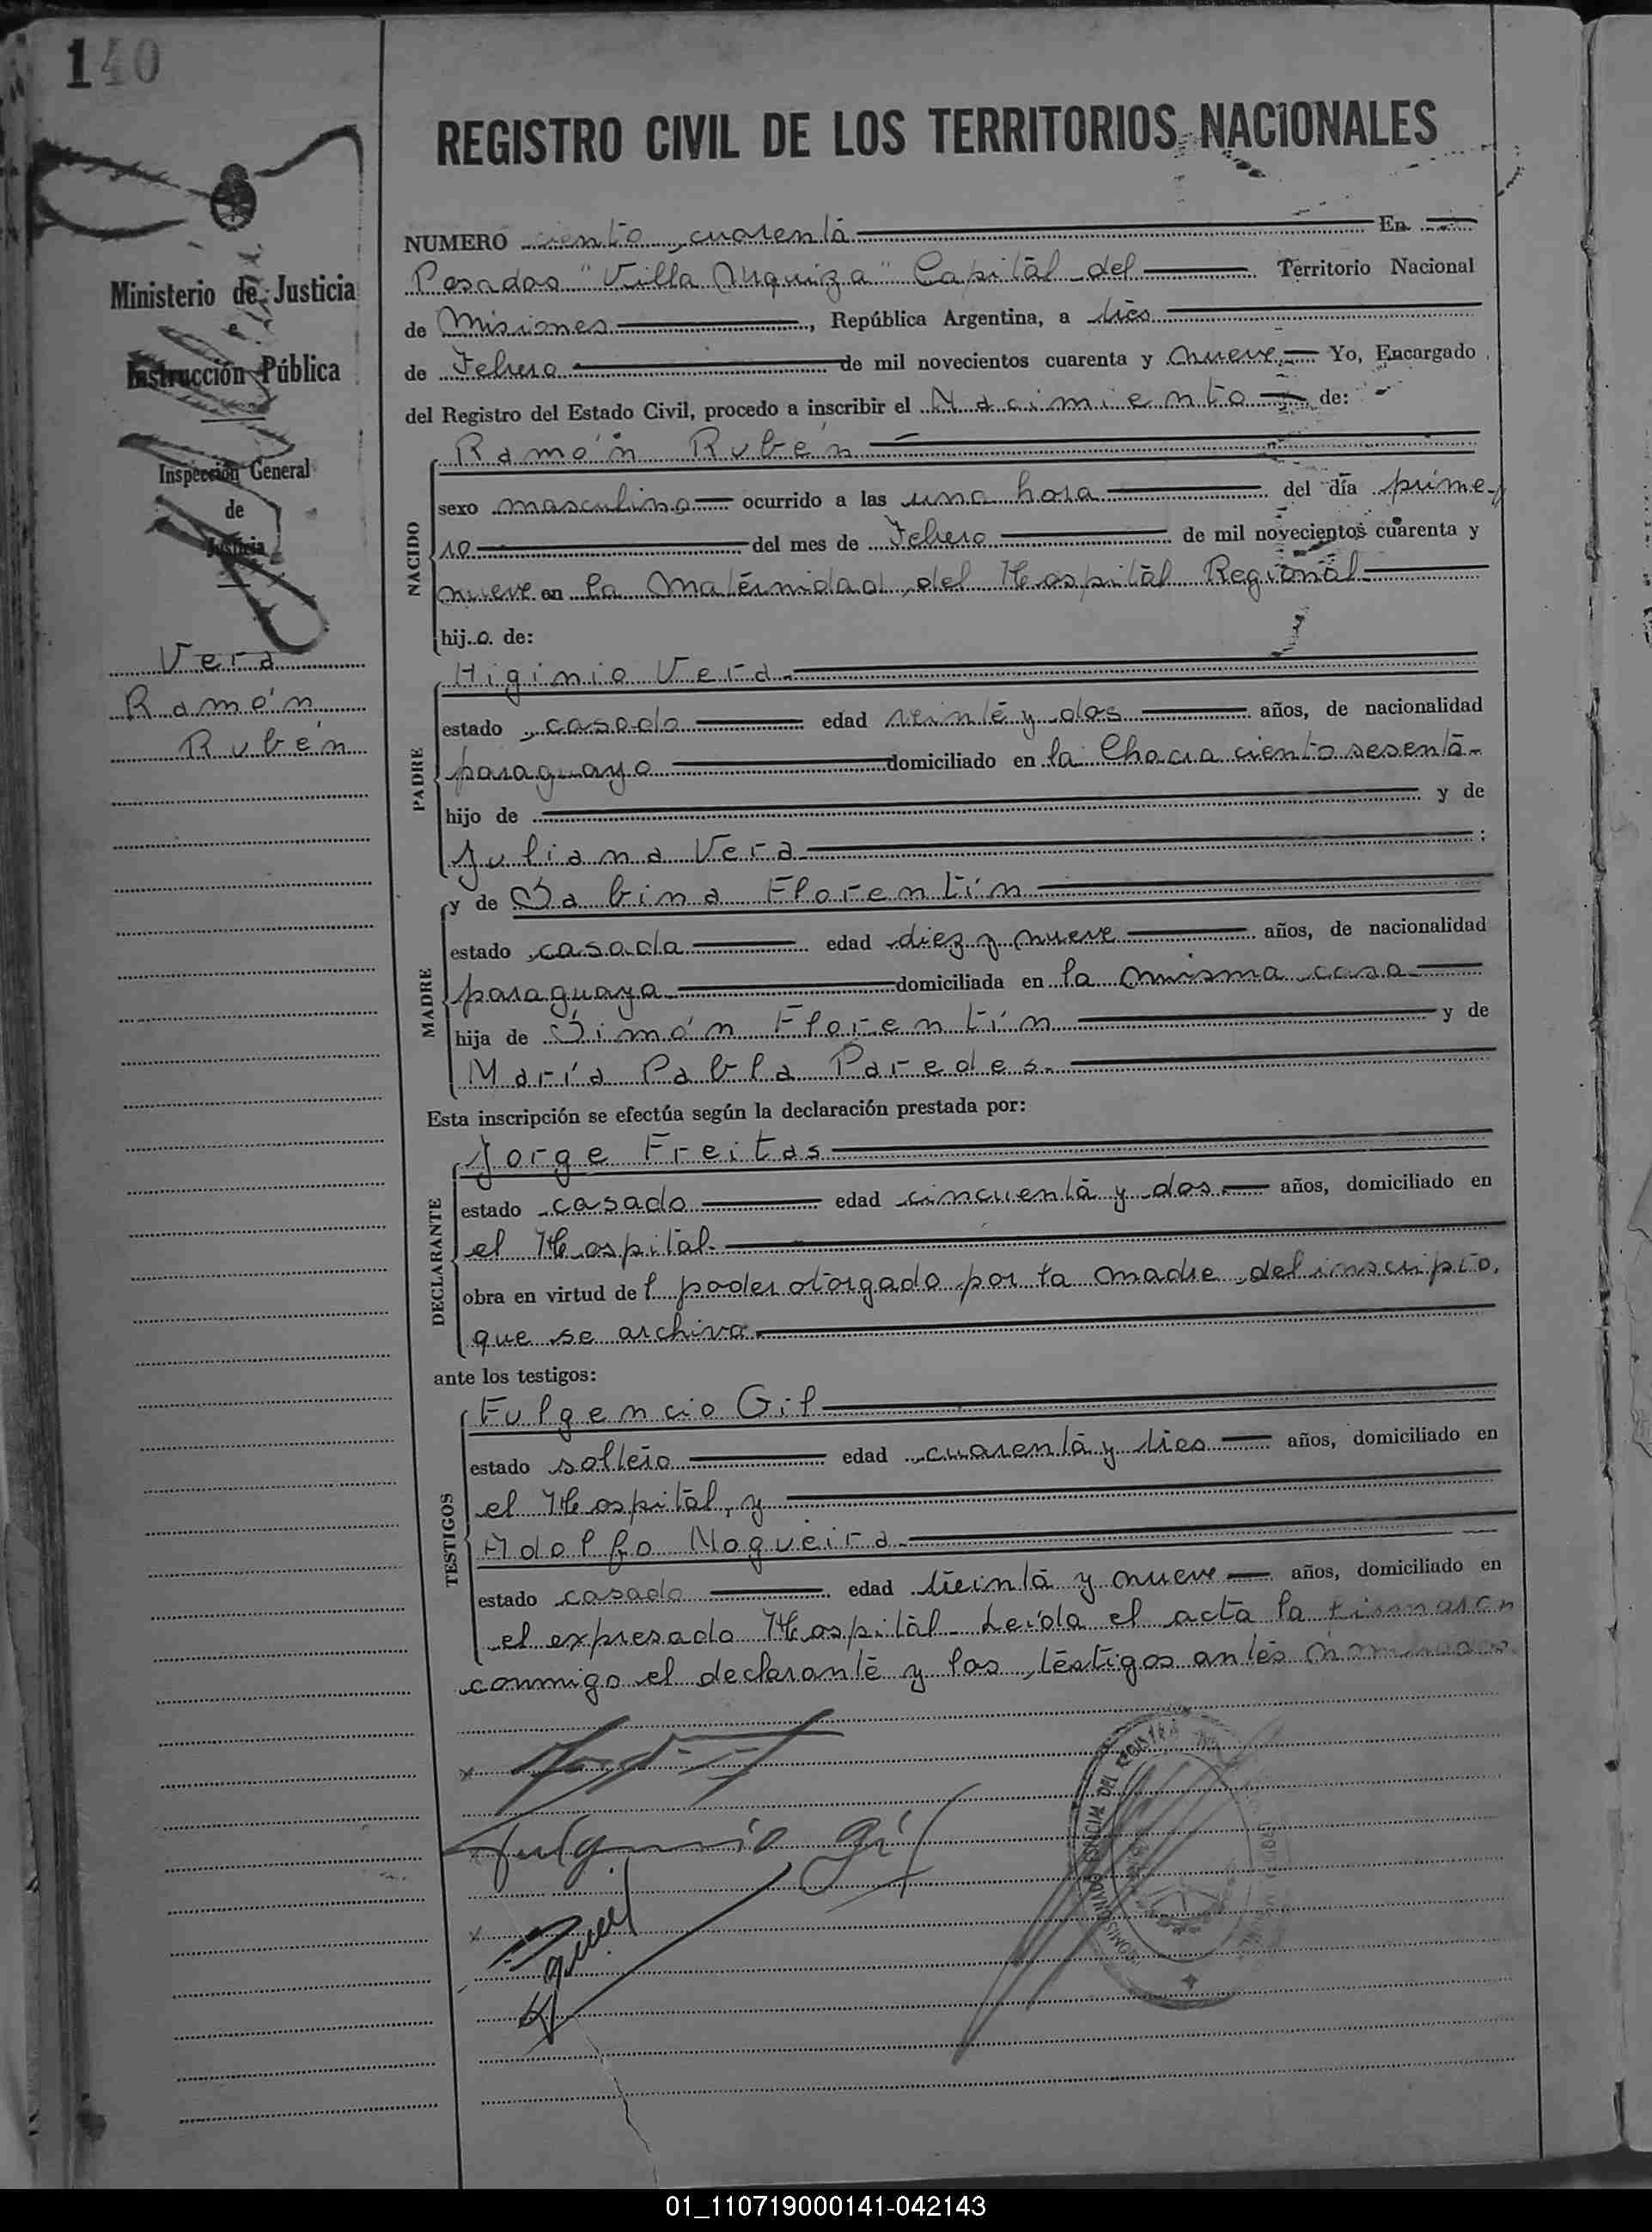 140
REGISTRO CIVIL DE LOS TERRITORIOS NACIONALES
Ministerio de Justicia
Instrucción Pública
Inspección General
de
Justicia
Vera
Ramón
Rubén
NUMERO ciento cuarenta En
Posadas "Villa Urquiza" Capital del Territorio Nacional
de Misiones, República Argentina, a tres
de Febrero de mil novecientos cuarenta y nueve Yo, Encargado
del Registro del Estado Civil, procedo a inscribir el Nacimiento de:
NACIDO
Ramón Rubén
sexo masculino ocurrido a las una hora del día prime-
ro del mes de Febrero de mil novecientos cuarenta y
nueve en la Maternidad del Hospital Regional
hijo de:
PADRE
Higinio Vera
estado casado edad veinte y dos años, de nacionalidad
paraguayo domiciliado en la Chacra ciento sesenta
hijo de y de
Juliana Vera ;
MADRE
y de Sabina Florentín
estado casada edad diez y nueve años, de nacionalidad
paraguaya domiciliada en la misma casa
hija de Simón Florentín y de
María Pabla Paredes.
Esta inscripción se efectúa según la declaración prestada por:
DECLARANTE
Jorge Freitas
estado casado edad cincuenta y dos años, domiciliado en
el Hospital.
obra en virtud del poder otorgado por la madre del inscripto,
que se archiva.
ante los testigos:
TESTIGOS
Fulgencio Gil
estado soltero edad cuarenta y tres años, domiciliado en
el Hospital, y
Adolfo Nogueira
estado casado edad treinta y nueve años, domiciliado en
el expresado Hospital. Leída el acta la firmaron
conmigo el declarante y los testigos antes nominados
Fulgencio Gil
01_110719000141-042143